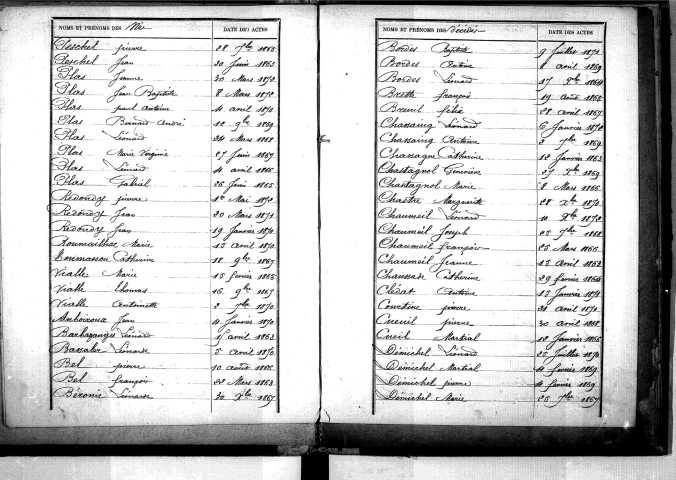 NOMS ET PRÉNOMS DES Nés DATE DES ACTES
Peschel pierre 28 7bre 1865
Peschel Jean 20 Juin 1863
Plas Jeanne 20 Mars 1870
Plas Jean Baptiste 8 Mars 1870
Plas paul antoine 4 avril 1870
Plas Bernard André 10 9bre 1869
Plas Léonard 24 Mars 1868
Plas Marie Virginie 27 Juin 1867
Plas Léonard 4 avril 1866
Plas Gabriel 26 Juin 1865
Redondy pierre 1er Mai 1870
Redondy Jean 20 Mars 1871
Redondy Jean 19 Janvier 1870
Roumailhac Marie 13 avril 1870
Catherine 18 9bre 1867
Vialle Marie 15 fevrier 1865
Vialle thomas 16 9bre 1867
Vialle Antoinette 2 7bre 1870
Amboiroux Jean 4 Janvier 1870
Barbazanges Léonard avril 1863
Léonarde 5 avril 1870
Bel pierre 10 août 1868
Bel françois 22 Mars 1863
Béronie Léonarde 30 Xbre 1867
NOMS ET PRÉNOMS DES Décédés DATE DES ACTES
Bordes Baptiste 9 Juillet 1871
Bordes Antoine 8 avril 1869
Bordes Léonard 17 Xbre 1864
Brette françois 19 août 1865
Breuil félix 28 avril 1867
Chassaing Léonard 6 Janvier 1870
Chassaing Antoine 2 7bre 1869
Chassagne Catherine 10 Janvier 1863
Chastagnol Geneviève 27 Xbre 1869
Chastagnol Marie 8 Mars 1866
Chastre Marguerite 28 Xbre 1870
Chaumeil Léonard 10 Xbre 1870
Chaumeil Joseph 25 7bre 1868
Chaumeil françois 25 Mars 1866
Chaumeil Jeanne 13 avril 1863
Chaussade Catherine 29 fevrier 1864
Clédat Antoine 13 Janvier 1871
Courtine pierre 21 avril 1870
Cueuil pierre 20 avril 1868
Cueil Martial 10 Janvier 1865
Démichel Léonard 25 Juillet 1870
Démichel Martial 4 fevrier 1869
Démichel pierre 4 fevrier 1869
Démichel Marie 25 7bre 1867